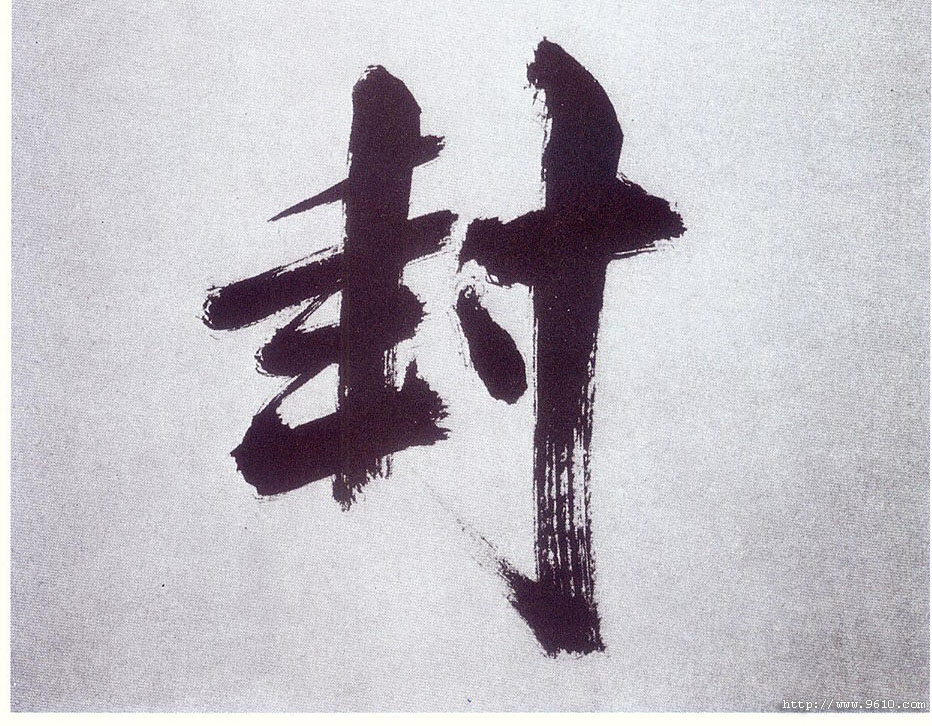 封
http://www.9610.com